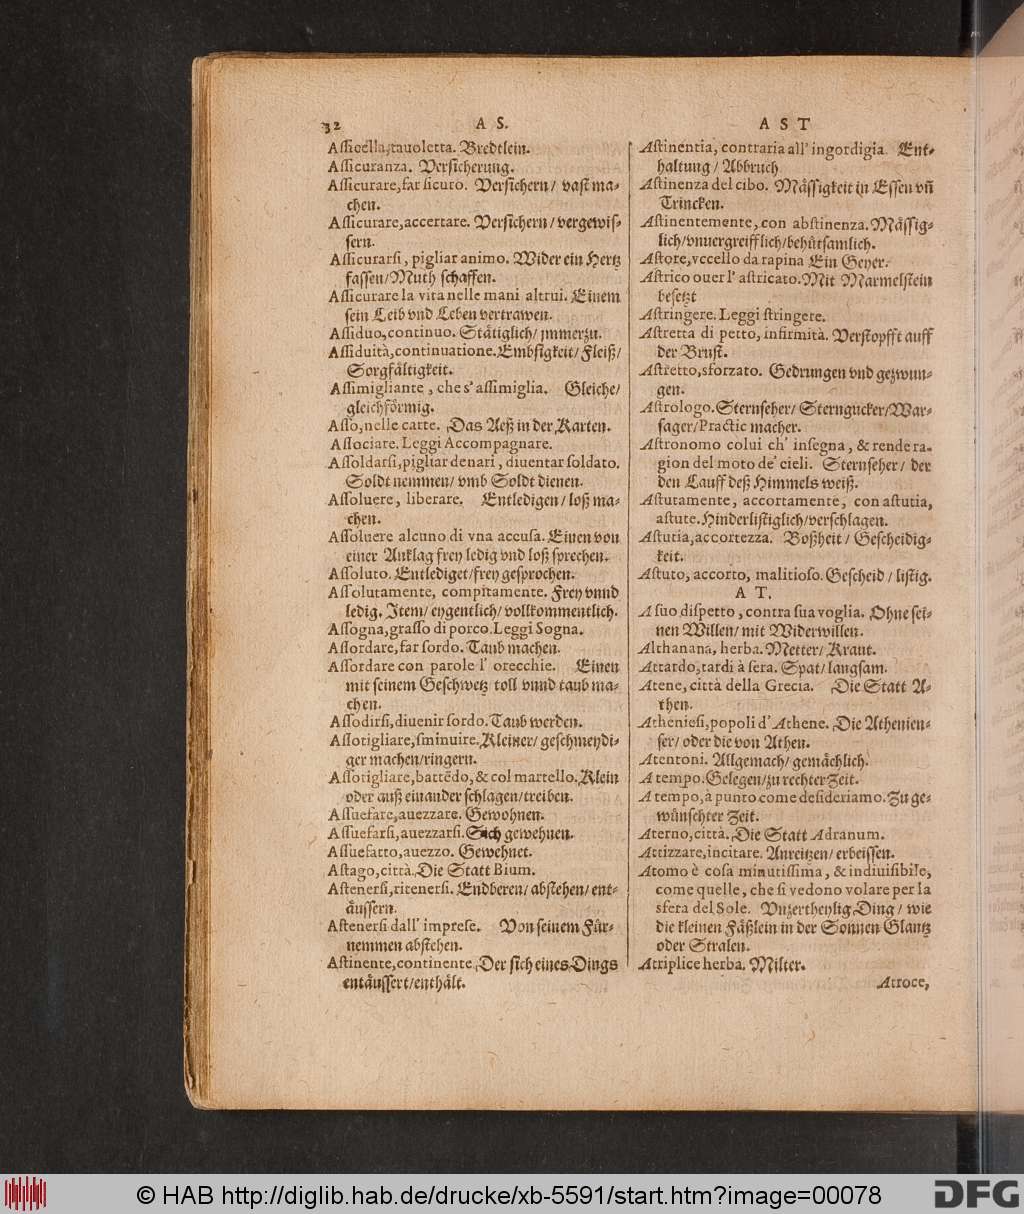 32 A S.
Aſſicella, tauoletta. Bredtlein.
Aſſicuranza. Verſicherung.
Aſſicurare, far ſicuro. Verſichern/ vaſt ma-
chen.
Aſſicurare, accertare. Verſichern/ vergewiſ-
ſern.
Aſſicurarſi, pigliar animo. Wider ein Hertz
faſſen/ Muth ſchaffen.
Aſſicurare la vita nelle mani altrui. Einem
ſein Leib vnd Leben vertrawen.
Aſſiduo, continuo. Stätiglich/ jmmerzu.
Aſſiduità, continuatione. Embſigkeit/ Fleiß/
Sorgfältigkeit.
Aſſimigliante, che s'aſſimiglia. Gleiche/
gleichförmig.
Aſſo, nelle carte. Das Aeß in der Karten.
Aſſociare. Leggi Accompagnare.
Aſſoldarſi, pigliar denari, diuentar ſoldato.
Soldt nemmen/ vmb Soldt dienen.
Aſſoluere, liberare. Entledigen/ loß ma-
chen.
Aſſoluere alcuno di vna accuſa. Einen von
einer Anklag frey ledig vnd loß ſprechen.
Aſſoluto. Entlediget/ frey geſprochen.
Aſſolutamente, compitamente. Frey vnnd
ledig. Item/ eygentlich/ vollkommentlich.
Aſſogna, graſſo di porco. Leggi Sogna.
Aſſordare, far ſordo. Taub machen.
Aſſordare con parole l' orecchie. Einen
mit ſeinem Geſchwetz toll vnnd taub ma-
chen.
Aſſodirſi, diuenir ſordo. Taub werden.
Aſſotigliare, ſminuire. Kleiner/ geſchmeydi-
ger machen/ ringern.
Aſſotigliare, battēdo, & col martello. Klein
oder auß einander ſchlagen/ treiben.
Aſſuefare, auezzare. Gewohnen.
Aſſuefarſi, auezzarſi. Sich gewehnen.
Aſſuefatto, auezzo. Gewehnet.
Aſtago, città. Die Statt Bium.
Aſtenerſi, ritenerſi. Endberen/ abſtehen/ ent-
äuſſern.
Aſtenerſi dall' impreſe. Von ſeinem Für-
nemmen abſtehen.
Aſtinente, continente. Der ſich eines Dings
entäuſſert/ enthält.
A S T
Aſtinentia, contraria all' ingordigia. Ent-
haltung/ Abbruch
Aſtinenza del cibo. Mäſſigkeit in Eſſen vñ
Trincken.
Aſtinentemente, con abſtinenza. Mäſſig-
lich/ vnuergreifflich/ behütſamlich.
Aſtore, vccello da rapina Ein Geyer.
Aſtrico ouer l' aſtricato. Mit Marmelſtein
beſetzt
Aſtringere. Leggi ſtringere.
Aſtretta di petto, infirmità. Verſtopfft auff
der Bruſt.
Aſtretto, sforzato. Gedrungen vnd gezwun-
gen.
Aſtrologo. Sternſeher/ Sterngucker/ War-
ſager/ Practic macher.
Aſtronomo colui ch' inſegna, & rende ra-
gion del moto de' cieli. Sternſeher/ der
den Lauff deß Himmels weiß.
Aſtutamente, accortamente, con aſtutia,
aſtute. Hinderliſtiglich/ verſchlagen.
Aſtutia, accortezza. Boßheit/ Geſcheidig-
keit.
Aſtuto, accorto, malitioſo. Geſcheid/ liſtig.
A T.
A ſuo diſpetto, contra ſua voglia. Ohne ſei-
nen Willen/ mit Widerwillen.
Althanana, herba. Metter/ Kraut.
Attardo, tardi à ſera. Spat/ langſam.
Atene, città della Grecia. Die Statt A-
then.
Athenieſi, popoli d' Athene. Die Athenien-
ſer/ oder die von Athen.
Atentoni. Allgemach/ gemächlich.
A tempo. Gelegen/ zu rechter Zeit.
A tempo, à punto come deſideriamo. Zu ge-
wünſchter Zeit.
Aterno, città. Die Statt Adranum.
Attizzare, incitare. Anreitzen/ erbeiſſen.
Atomo è coſa minutiſſima, & indiuiſibile,
come quelle, che ſi vedono volare per la
sfera del Sole. Vnzertheylig Ding/ wie
die kleinen Fäßlein in der Sonnen Glantz
oder Stralen.
Atriplice herba. Milter.
Atroce,
© HAB http://diglib.hab.de/drucke/xb-5591/start.htm?image=00078
DFG